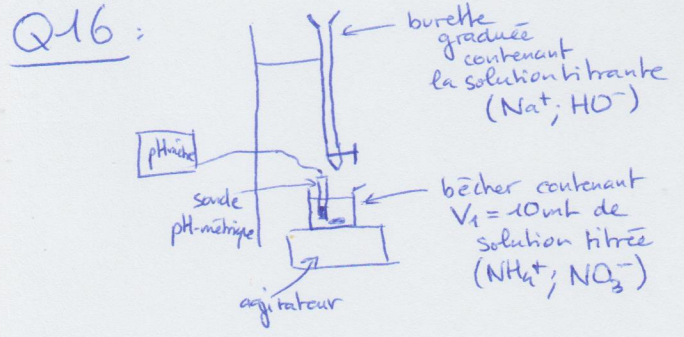 Q16 :
burette
graduée
contenant
la solution titrante
(Na⁺; HO⁻)
pH-mètre
sonde
pH-métrique
bêcher contenant
V₁ = 10 mL de
solution titrée
(NH₄⁺; NO₃⁻)
agitateur